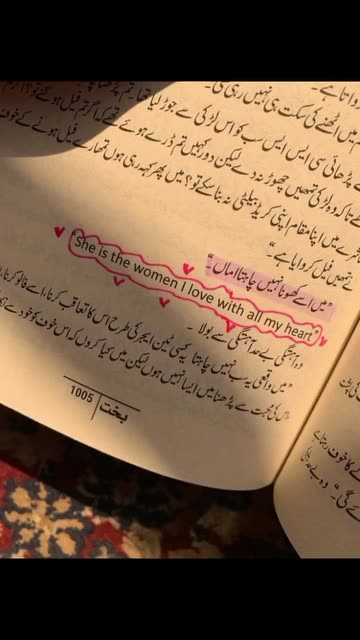 میں اٹھنے کی سکت ہی نہیں رہی تھی۔
پڑھائی سی ایس ایس سب کو اس لڑکی سے جوڑ لیا تھا۔ تم پڑھنا
کہ وہ لڑکی تمہیں چھوڑ نہ دے لیکن دور کہیں تم ڈرے ہوئے تھے کہ اگر تم فیل ہو گئے تو؟ اگر تم
میں اپنا مقام اپنی کریڈیبلٹی نہ بنا سکے تو؟ میں پھر کہہ رہی ہوں تمہارے فیل ہونے کے خوف
نے تمہیں فیل کروایا ہے۔"
"میں اسے کھونا نہیں چاہتا اماں۔"
"She is the women I love with all my heart"
وہ آہستگی بے حد آہستگی سے بولا۔
"میں واقعی یہ سب نہیں چاہتا کیسی ٹین ایجر کی طرح اس کا تعاقب کرنا، اسے قائل کرنا،
کی محبت سے پڑھنا میں ایسا نہیں ہوں لیکن میں کیا کروں کہ اس خوف کو خود سے
1005 | بخت